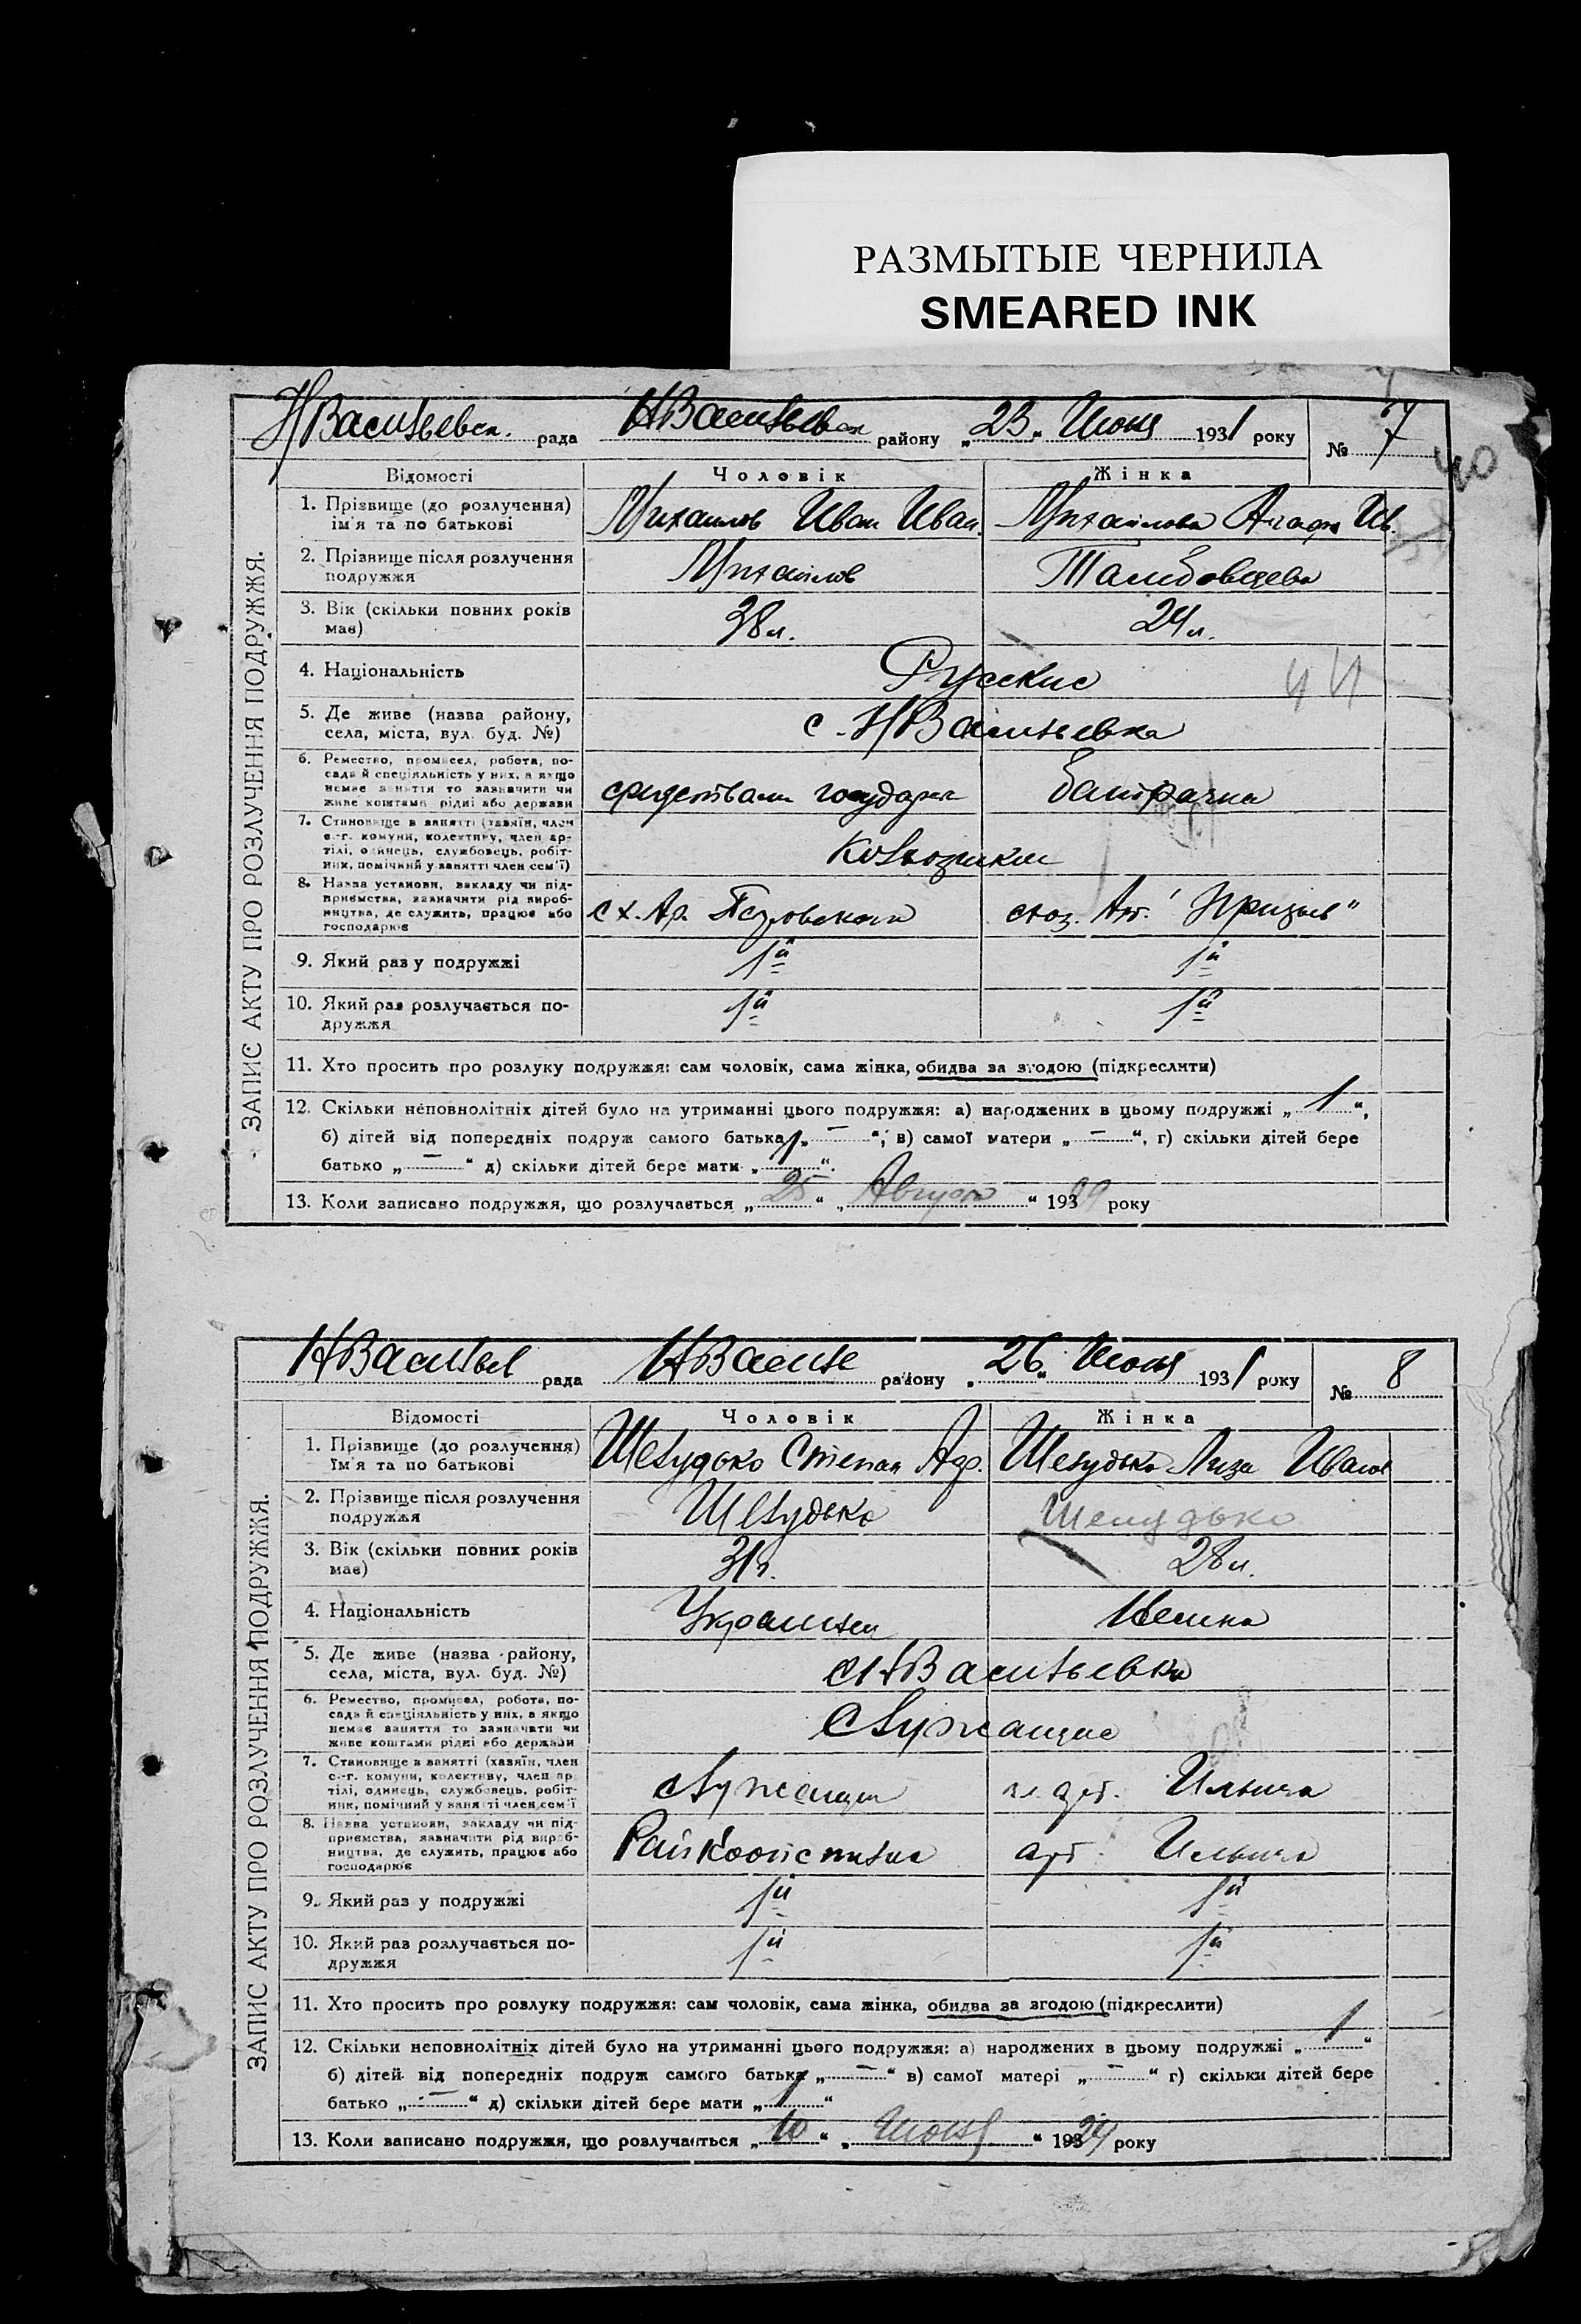 РАЗМЫТЫЕ ЧЕРНИЛА
SMEARED INK
НВасильевск. рада НВасильевск району „23“ Июня 1931 року № 7
40
ЗАПИС АКТУ ПРО РОЗЛУЧЕННЯ ПОДРУЖЖЯ.
Відомості Чоловік Жінка
1. Прізвище (до розлучення) ім'я та по батькові Михаилов Иван Иван. Михайлова Агафя Ив.
2. Прізвище після розлучення подружжя Михайлов Тамбовцева
3. Вік (скільки повних років має) 38 л. 24 л.
4. Національність Русские
5. Де живе (назва району, села, міста, вул. буд. №) с. НВасильевка
6. Ремество, промисел, робота, посада й спеціяльність у них, а якщо немає заняття то зазначити чи живе коштами рідні або держави средствами государ. батрачка
7. Становище в занятті (хазяїн, член с.-г. комуни, колективу, член артілі, одинець, службовець, робітник, помічний у занятті член сем'ї) Колхозники
8. Назва установи, закладу чи підприємства, зазначити рід виробництва, де служить, працює або господарює с х. Ар. Петровского схоз. Арт. "Призыв"
9. Який раз у подружжі 1й 1й
10. Який раз розлучається подружжя 1й 1й
11. Хто просить про розлуку подружжя: сам чоловік, сама жінка, обидва за згодою (підкреслити)
12. Скільки неповнолітніх дітей було на утриманні цього подружжя: а) народжених в цьому подружжі „1“,
б) дітей від попередніх подруж самого батька „—“, в) самої матери „—“, г) скільки дітей бере
батько „—“ д) скільки дітей бере мати „1“.
13. Коли записано подружжя, що розлучається „25“ „Августа“ 1939 року
НВасильев рада НВасиле району „26“ Июня 1931 року № 8
ЗАПИС АКТУ ПРО РОЗЛУЧЕННЯ ПОДРУЖЖЯ.
Відомості Чоловік Жінка
1. Прізвище (до розлучення) їм'я та по батькові Шелудько Степан Адр. Шелудько Лиза Иванов
2. Прізвище після розлучення подружжя Шелудько Шелудько
3. Вік (скільки повних років має) 31 л. 28 л.
4. Національність Украинец Немка
5. Де живе (назва району, села, міста, вул. буд. №) с НВасильевка
6. Ремество, промисел, робота, посада й спеціяльність у них, а якщо немає заняття то зазначати чи живе коштами рідні або держави Служащие
7. Становище в занятті (хазяїн, член с.-г. комуни, колективу, член артілі, одинець, службовець, робітник, помічний у занятті член сем'ї Служащий чл. арт. Ильича
8. Назва установи, закладу чи підприємства, зазначити рід виробництва, де служить, працює або господарює арт. Ильича
9. Який раз у подружжі 1й 1й
10. Який раз розлучається подружжя 1й 1й
11. Хто просить про розлуку подружжя: сам чоловік, сама жінка, обидва за згодою (підкреслити)
12. Скільки неповнолітніх дітей було на утриманні цього подружжя: а) народжених в цьому подружжі „1“
б) дітей від попередніх подруж самого батька „—“ в) самої матері „—“ г) скільки дітей бере
батько „—“ д) скільки дітей бере мати „1“
13. Коли записано подружжя, що розлучається „10“ „Июня“ 1924 року